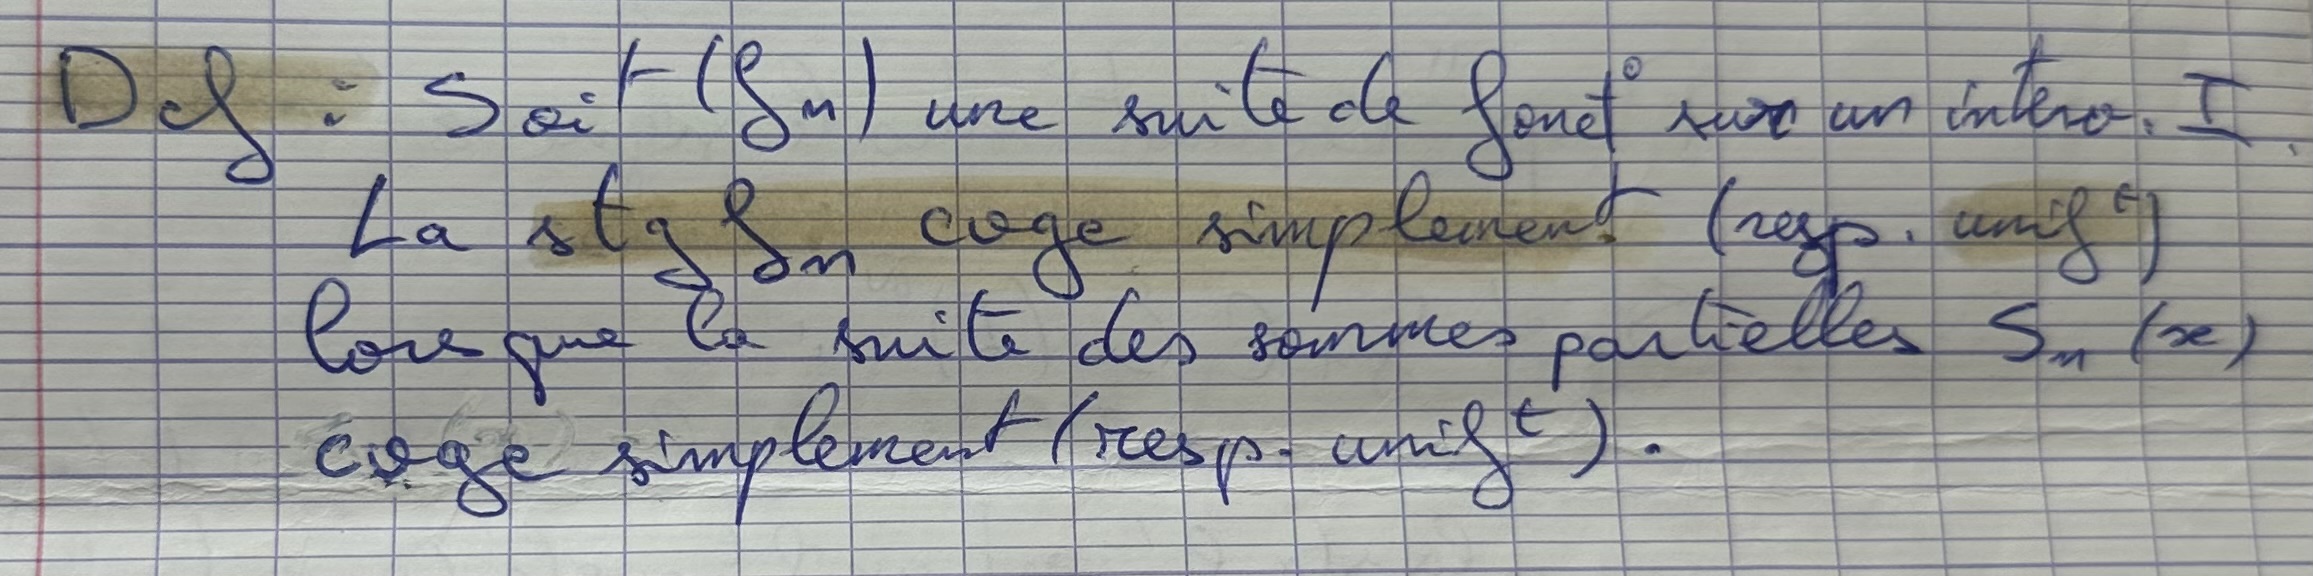 Def : Soit (fn) une suite de fonct° sur un interv. I.
La stg fn cvge simplement (resp. unif^t)
lorsque la suite des sommes partielles Sn (x)
cvge simplement (resp. unif^t).